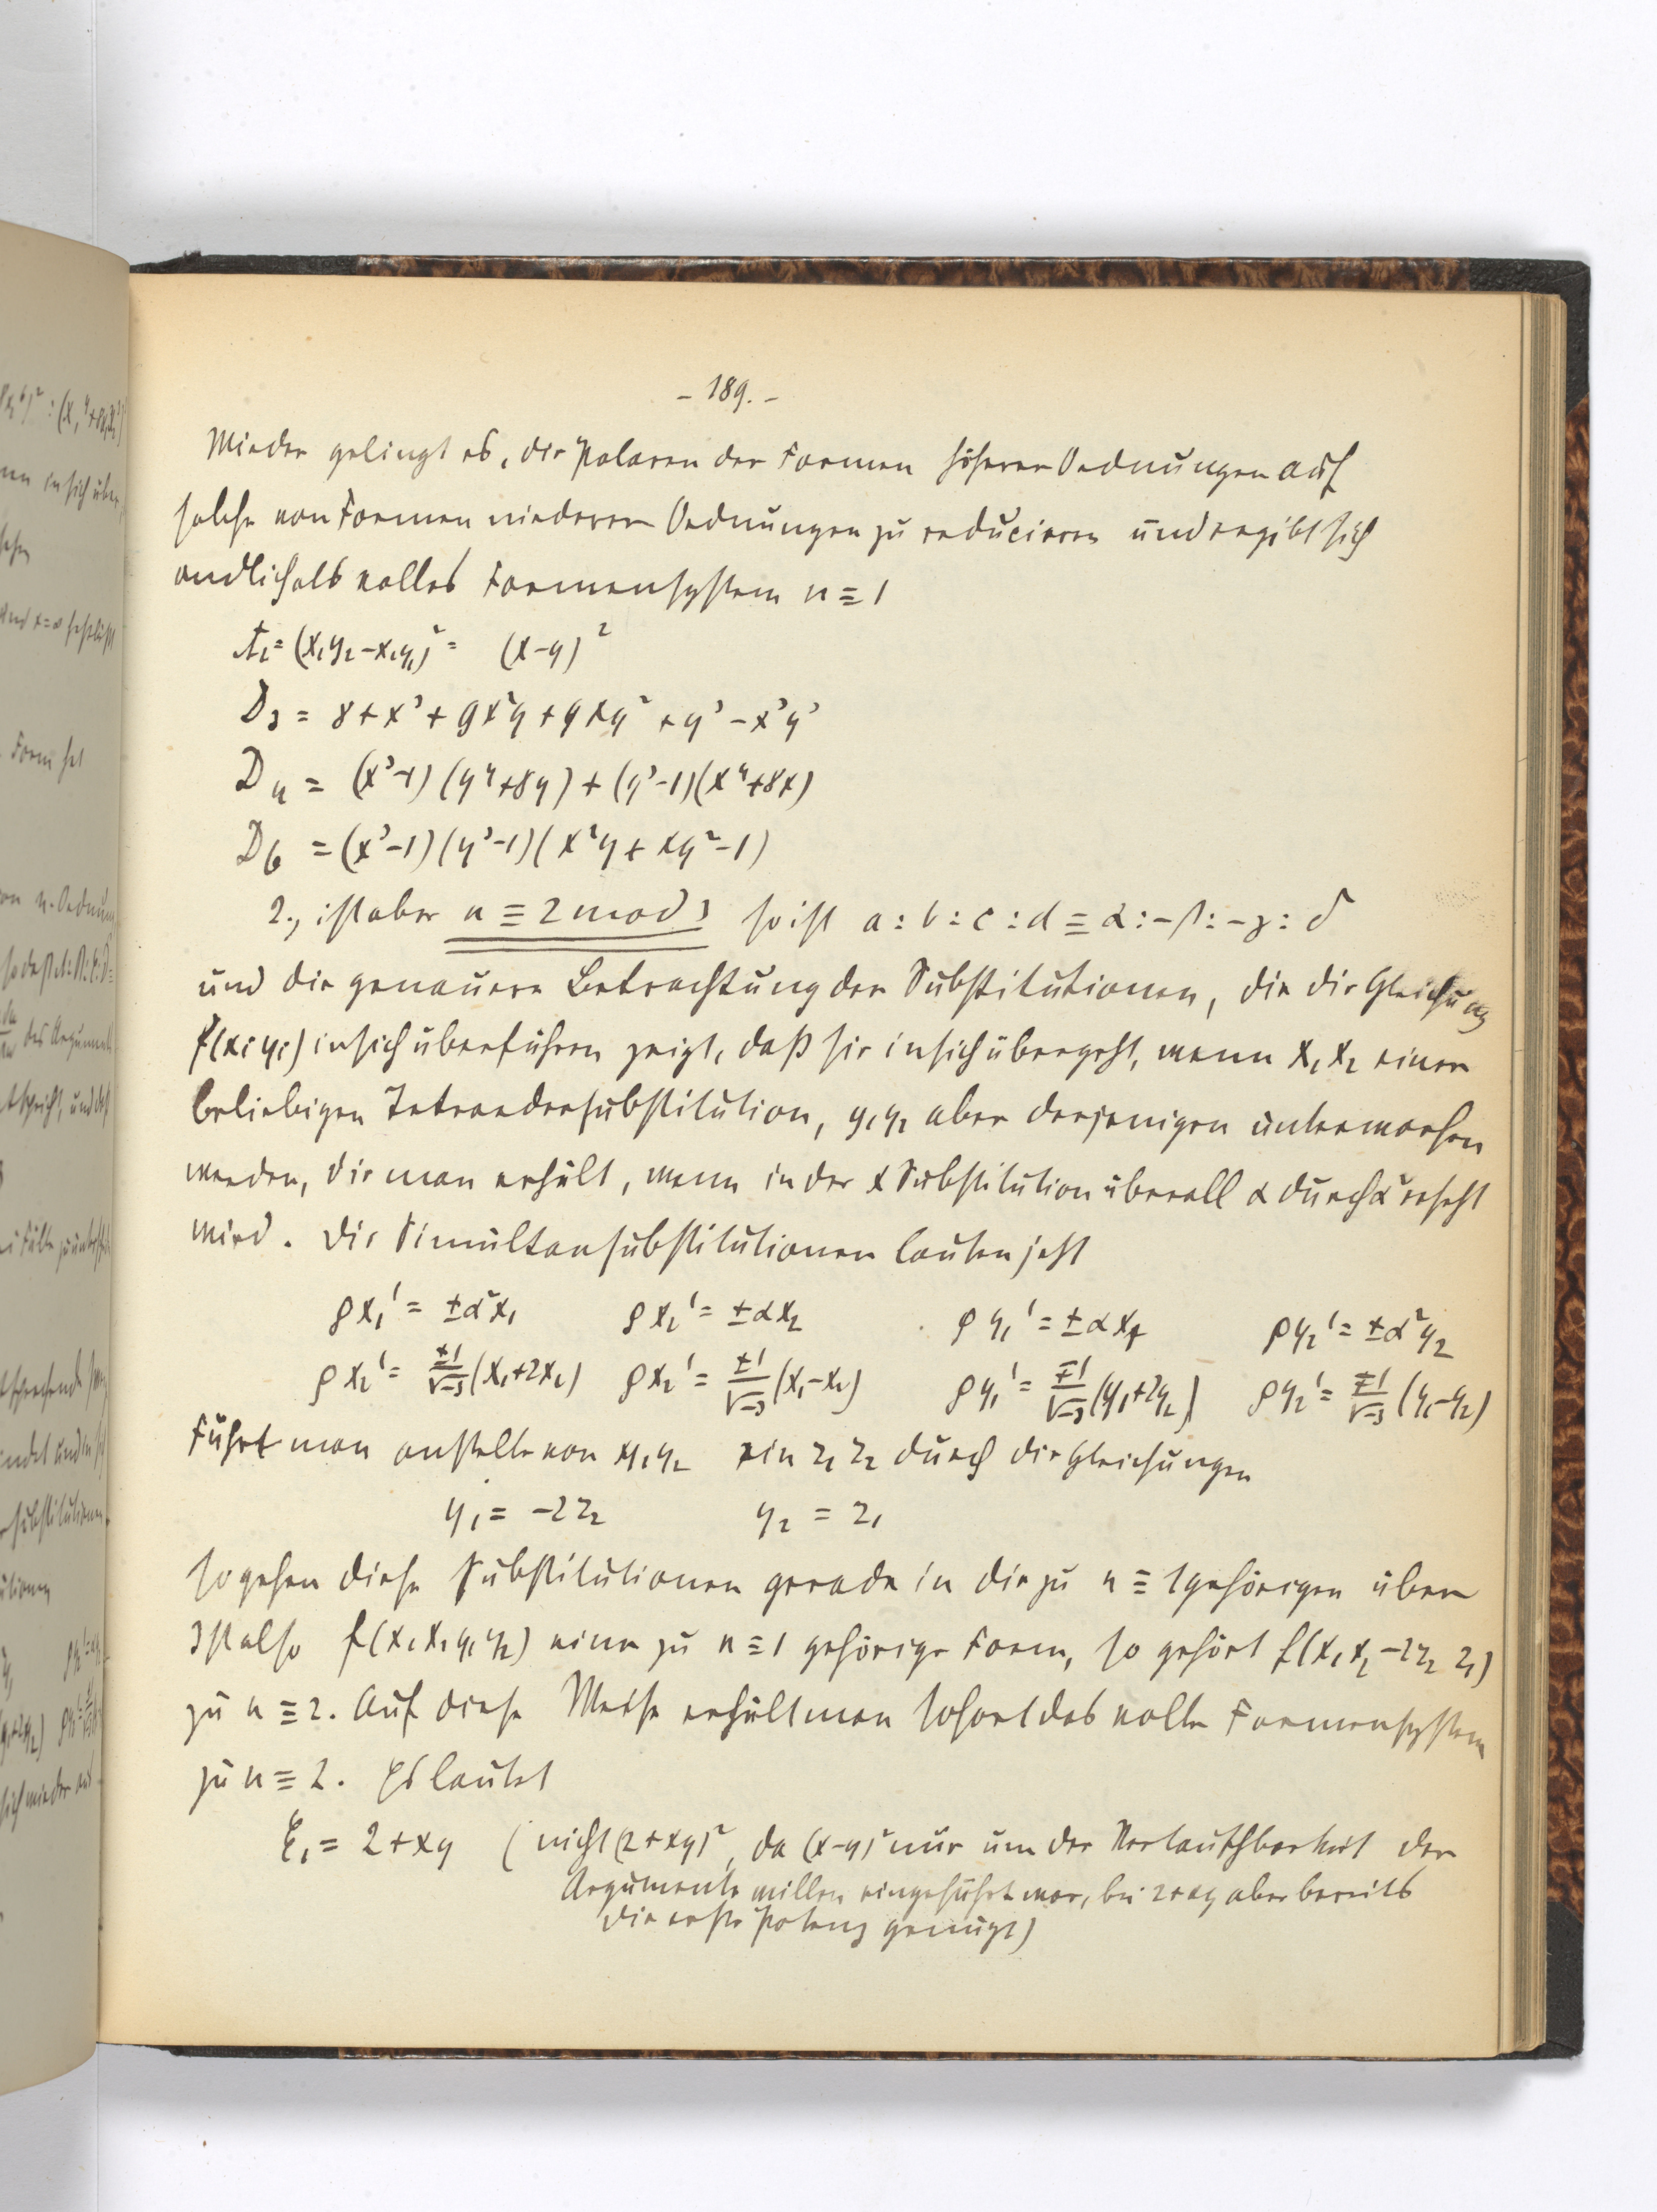 - 189. -
Wieder gelingt es, die Polaren der Formen höherer Ordnungen auf
solche von Formen niederer Ordnungen zu reducieren und ergibt sich
endlich als volles Formensystem n ≡ 1
A₂ = (x₁y₂-x₂y₁)² = (x-y)²
D₃ = 8 + x³ + 9x²y + 9xy² + y³ - x³y³
D₄ = (x³-1)(y⁴+8y) + (y³-1)(x⁴+8x)
D₆ = (x³-1)(y³-1)(x²y + xy²-1)
2., ist aber n ≡ 2 mod 3 so ist a : b : c : d ≡ α : -β : -γ : δ
und die genauere Betrachtung der Substitutionen, die die Gleichung
f(xᵢ yᵢ) in sich überführen zeigt, daß sie in sich übergeht, wenn x₁ x₂ einer
beliebigen Tetraedersubstitution, y₁ y₂ aber derjenigen unterworfen
werden, die man erhält, wenn in der x Substitution überall α durch α² ersetzt
wird. Die Simultansubstitutionen lauten jetzt
ρx₁' = ±α²x₁ ρx₂' = ±αx₂ ρy₁' = ±αx₁ ρy₂' = ±α²y₂
ρx₂' = ±1/√-3 (x₁+2x₂) ρx₂' = ±1/√-3 (x₁-x₂) ρy₁' = ∓1/√-3 (y₁+2y₂) ρy₂' = ∓1/√-3 (y₁-y₂)
Führt man anstelle von y₁ y₂ ein z₁ z₂ durch die Gleichungen
y₁ = -2z₂ y₂ = z₁
so gehen diese Substitutionen gerade in die zu n ≡ 1 gehörigen über
Ist also f(x₁ x₂ y₁ y₂) eine zu n ≡ 1 gehörige Form, so gehört f(x₁ x₂ -2z₂ z₁)
zu n ≡ 2. Auf diese Weise erhält man sofort das volle Formensystem
zu n ≡ 2. Es lautet
E₁ = 2 + xy (nicht (2+xy)², da (x-y)² nur um der Vertauschbarkeit der
Argumente willen eingeführt war, bei 2+xy aber bereits
die erste Potenz genügt)